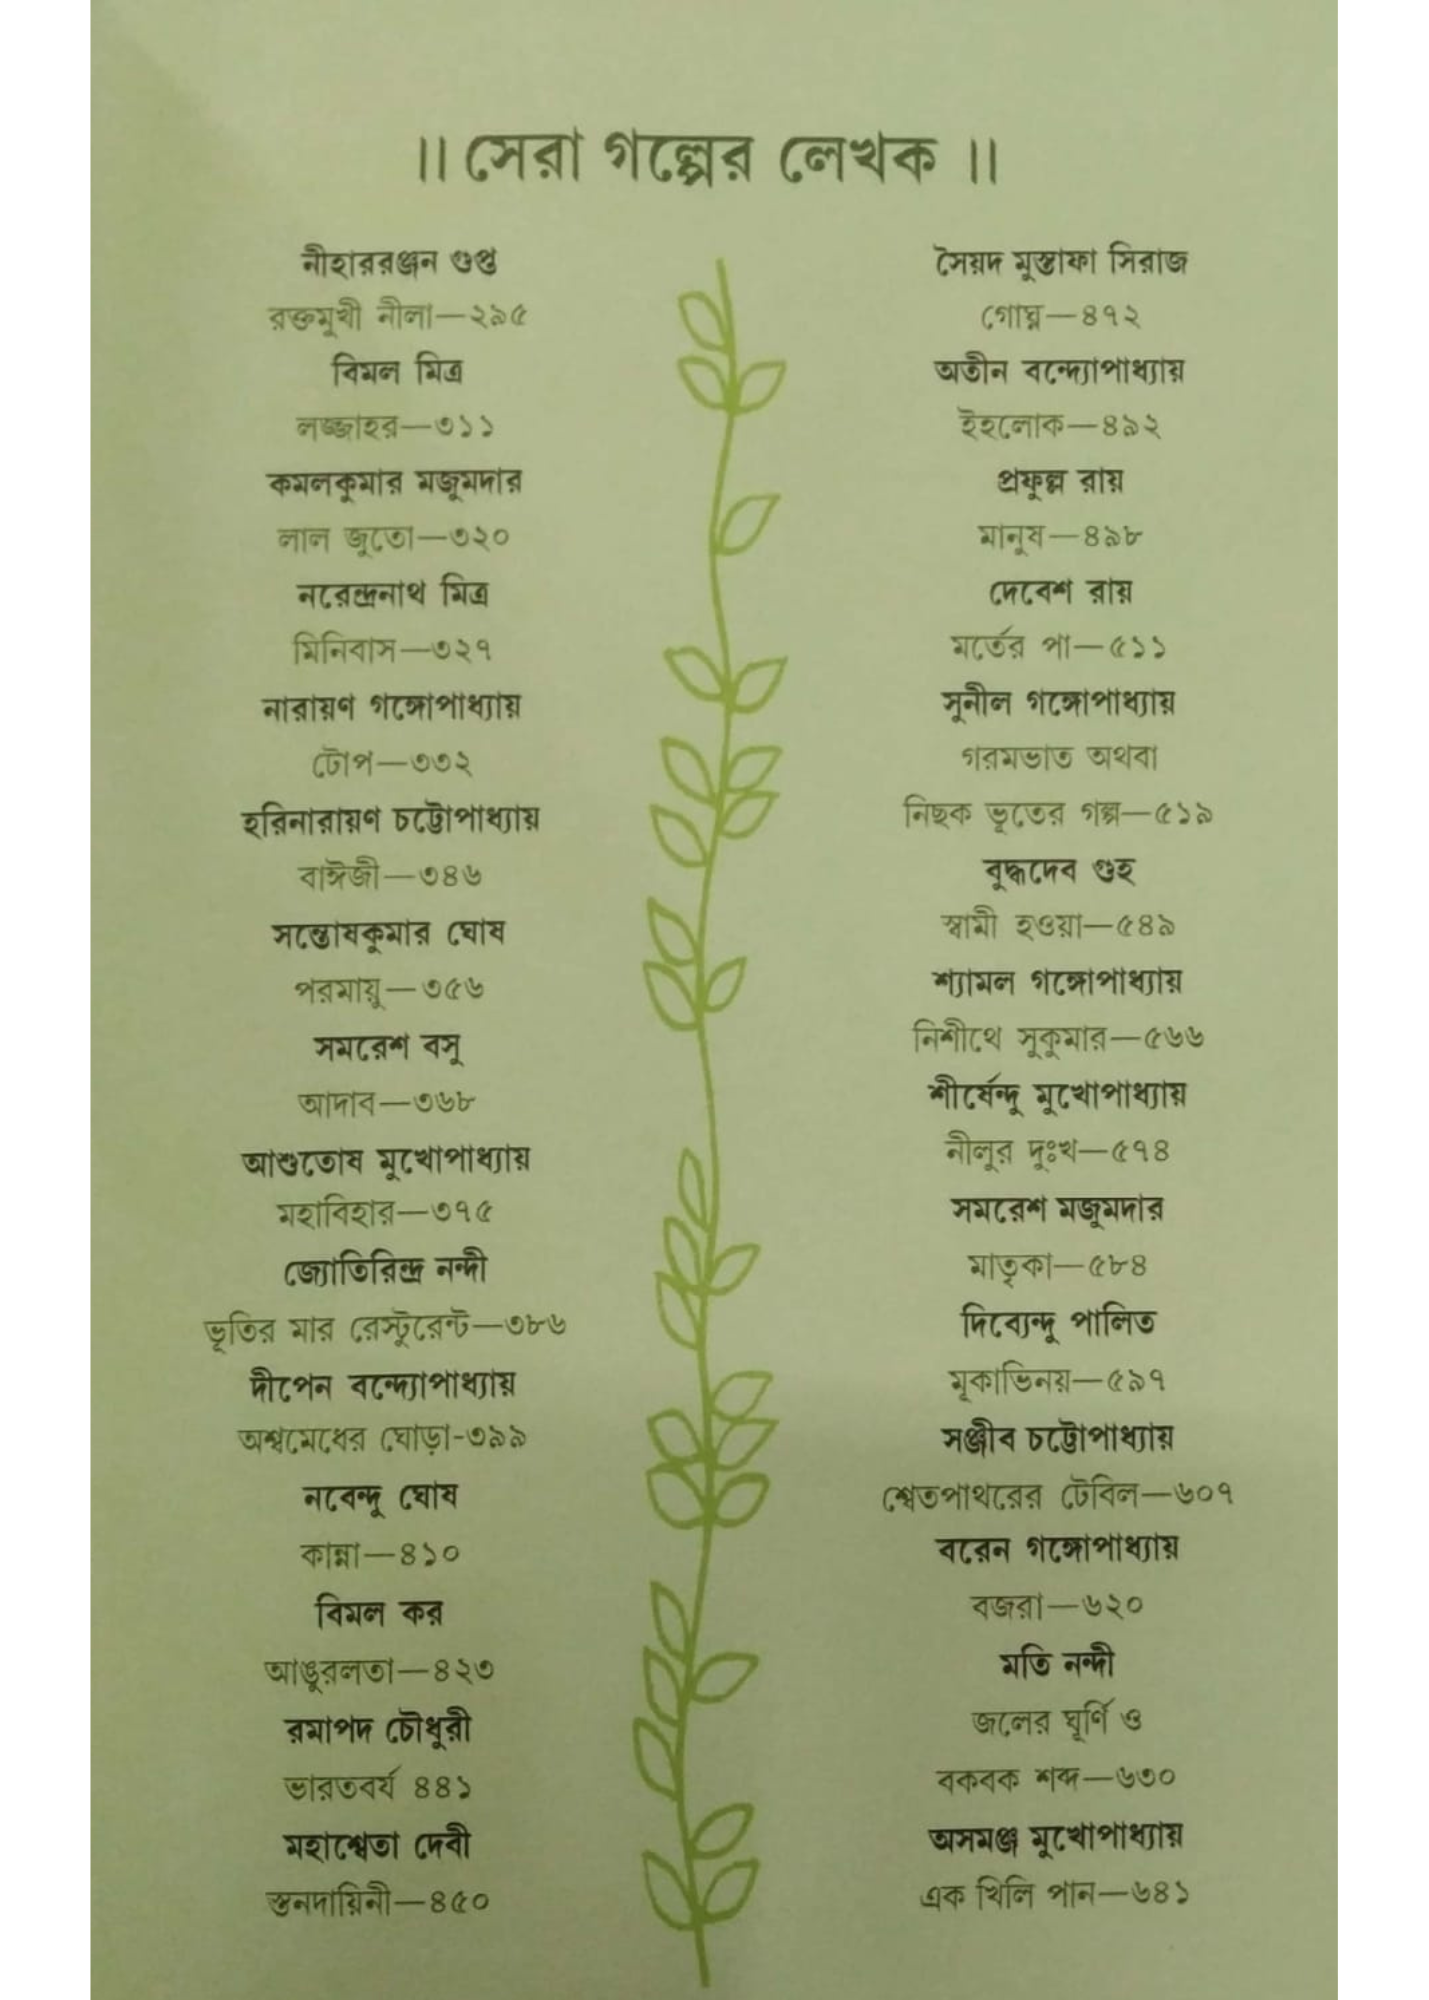 ॥ সেরা গল্পের লেখক ॥
নীহাররঞ্জন গুপ্ত
রক্তমুখী নীলা—২৯৫
বিমল মিত্র
লজ্জাহর—৩১১
কমলকুমার মজুমদার
লাল জুতো—৩২০
নরেন্দ্রনাথ মিত্র
মিনিবাস—৩২৭
নারায়ণ গঙ্গোপাধ্যায়
টোপ—৩৩২
হরিনারায়ণ চট্টোপাধ্যায়
বাঈজী—৩৪৬
সন্তোষকুমার ঘোষ
পরমায়ু—৩৫৬
সমরেশ বসু
আদাব—৩৬৮
আশুতোষ মুখোপাধ্যায়
মহাবিহার—৩৭৫
জ্যোতিরিন্দ্র নন্দী
ভূতির মার রেস্টুরেন্ট—৩৮৬
দীপেন বন্দ্যোপাধ্যায়
অশ্বমেধের ঘোড়া-৩৯৯
নবেন্দু ঘোষ
কান্না—৪১০
বিমল কর
আঙুরলতা—৪২৩
রমাপদ চৌধুরী
ভারতবর্ষ ৪৪১
মহাশ্বেতা দেবী
স্তনদায়িনী—৪৫০
সৈয়দ মুস্তাফা সিরাজ
গোঘ্ন—৪৭২
অতীন বন্দ্যোপাধ্যায়
ইহলোক—৪৯২
প্রফুল্ল রায়
মানুষ—৪৯৮
দেবেশ রায়
মর্তের পা—৫১১
সুনীল গঙ্গোপাধ্যায়
গরমভাত অথবা
নিছক ভূতের গল্প—৫১৯
বুদ্ধদেব গুহ
স্বামী হওয়া—৫৪৯
শ্যামল গঙ্গোপাধ্যায়
নিশীথে সুকুমার—৫৬৬
শীর্ষেন্দু মুখোপাধ্যায়
নীলুর দুঃখ—৫৭৪
সমরেশ মজুমদার
মাতৃকা—৫৮৪
দিব্যেন্দু পালিত
মূকাভিনয়—৫৯৭
সঞ্জীব চট্টোপাধ্যায়
শ্বেতপাথরের টেবিল—৬০৭
বরেন গঙ্গোপাধ্যায়
বজরা—৬২০
মতি নন্দী
জলের ঘূর্ণি ও
বকবক শব্দ—৬৩০
অসমঞ্জ মুখোপাধ্যায়
এক খিলি পান—৬৪১